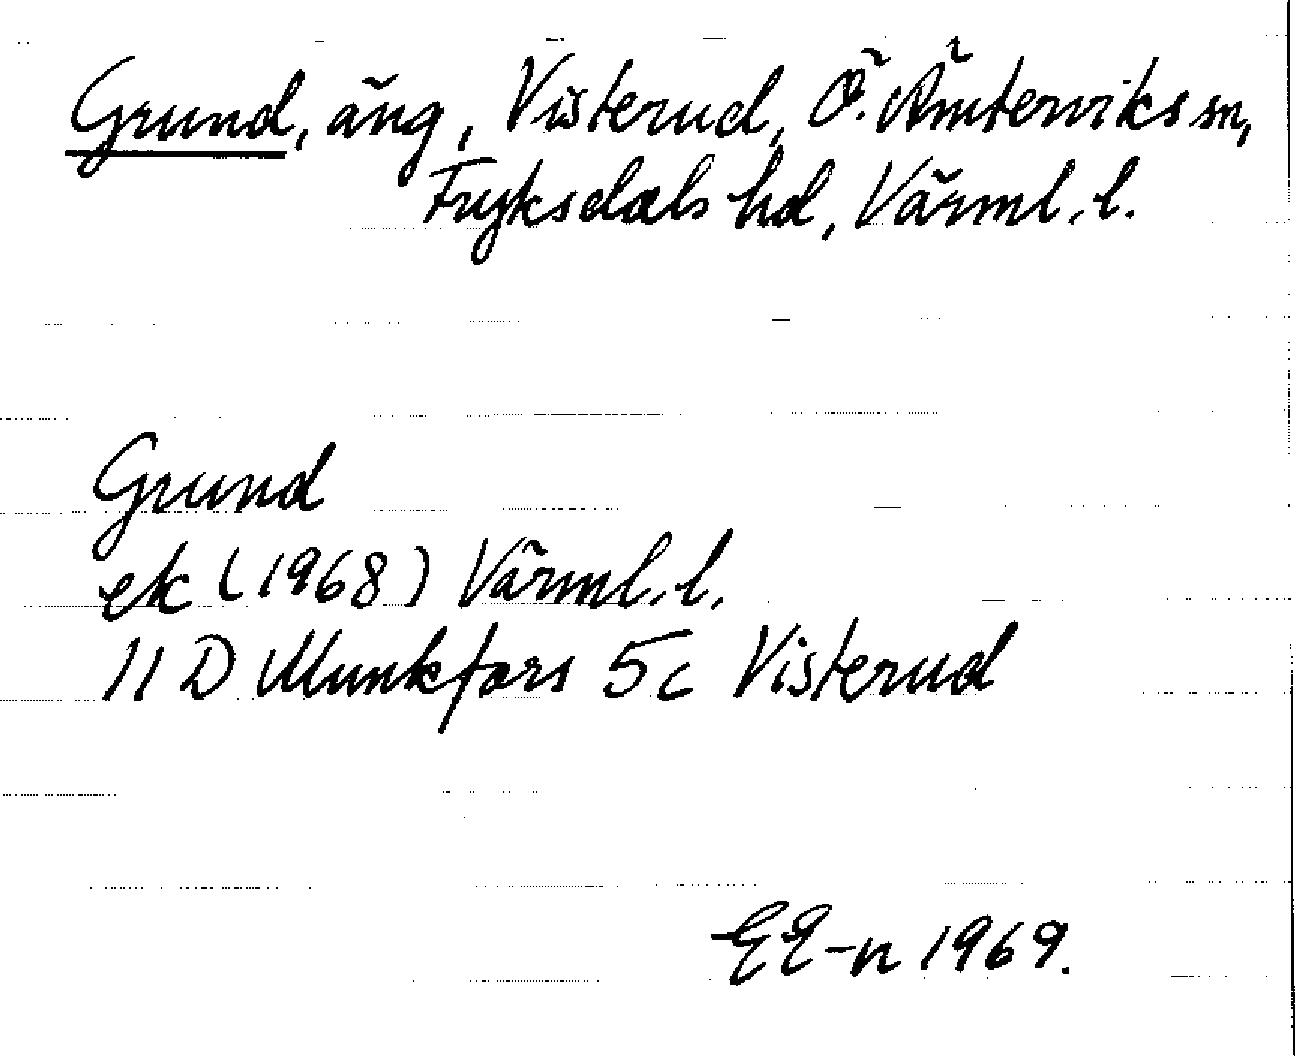 Grund, äng, Visterud, Ö. Ämterviks sn,
Fryksdals hd, Värml. l.
Grund
ek (1968) Värml. l.
11 D Munkfors 5c Visterud
EE-n 1969.